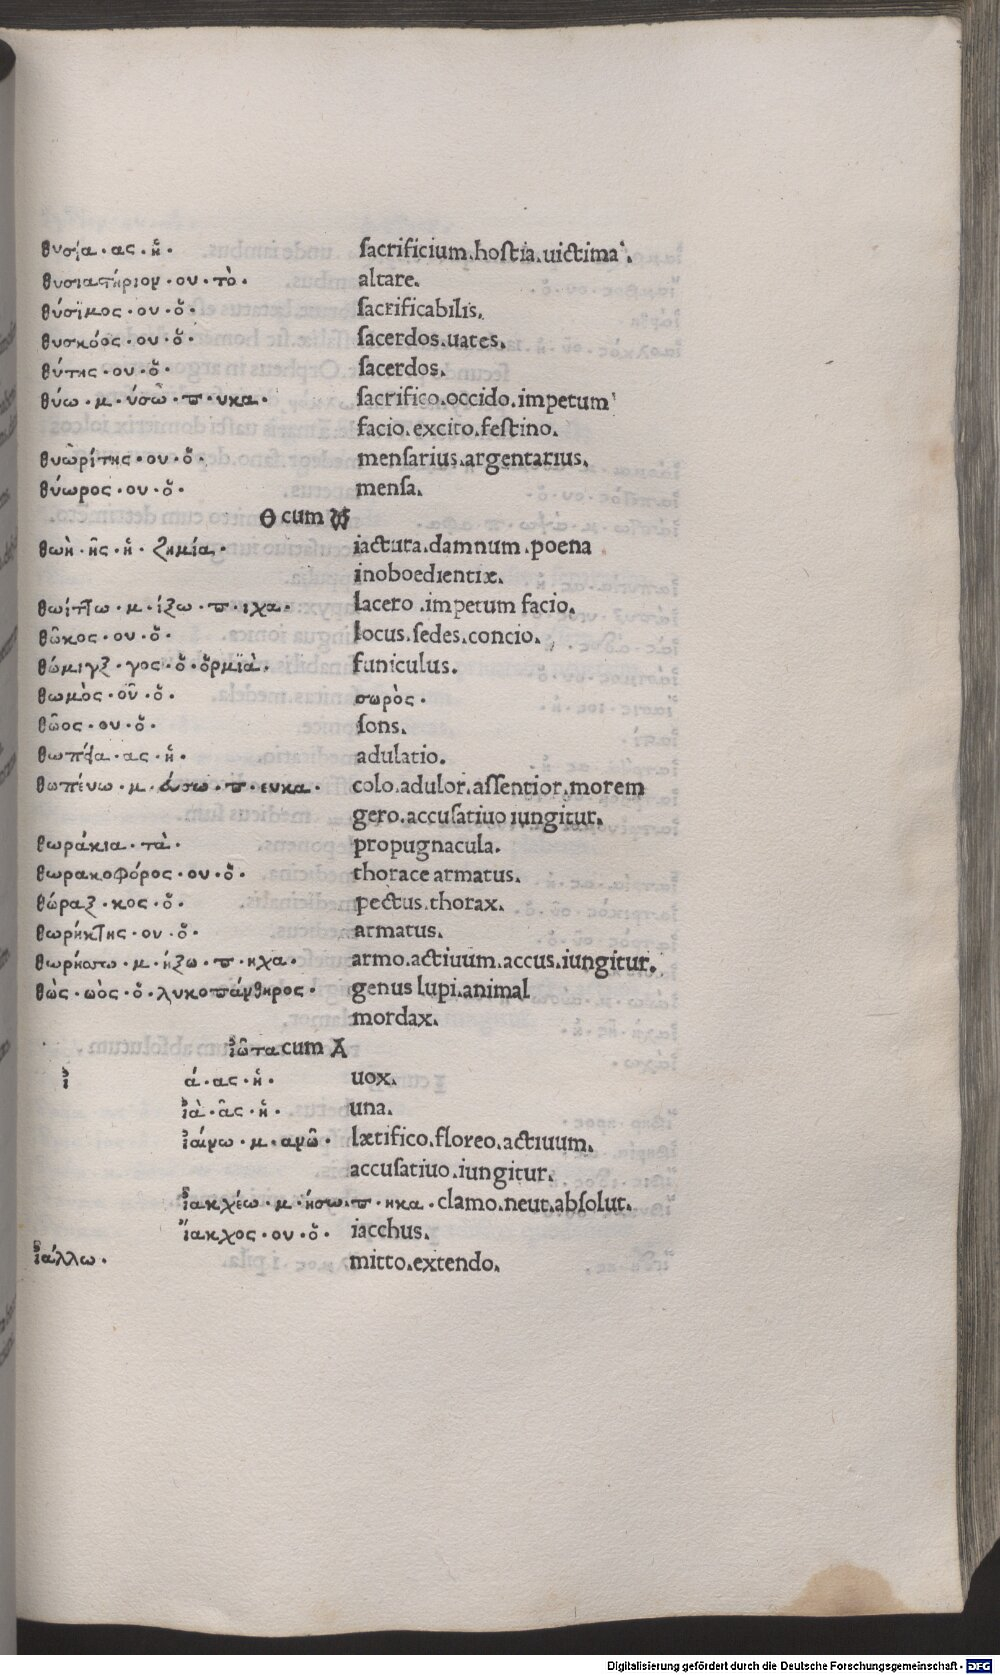 θυσία·ας·ἡ· sacrificium.hostia.uictima.
θυσιαστήριον·ου·τὸ· altare.
θύσιμος·ου·ὁ· sacrificabilis.
θυσκόος·ου·ὁ· sacerdos.uates.
θύτης·ου·ὁ· sacerdos.
θύω·μ·ύσω·π·υκα· sacrifico.occido.impetum
facio.excito.festino.
θυωρίτης·ου·ὁ· mensarius.argentarius.
θύωρος·ου·ὁ· mensa.
Θ cum Ω
θωὴ·ῆς·ἡ·ζημία· iactura.damnum.poena
inoboedientiæ.
θωίττω·μ·ίξω·π·ιχα· lacero.impetum facio.
θῶκος·ου·ὁ· locus.sedes.concio.
θώμιγξ·γος·ὁ·ὁρμϊὰ· funiculus.
θωμὸς·οῦ·ὁ· σωρὸς·
θῶος·ου·ὁ· sons.
θωπεία·ας·ἡ· adulatio.
θωπεύω·μ·εύσω·π·ευκα· colo.adulor.assentior.morem
gero.accusatiuo iungitur.
θωράκια·τὰ· propugnacula.
θωρακοφόρος·ου·ὁ· thorace armatus.
θώραξ·κος·ὁ· pectus.thorax.
θωρήκτης·ου·ὁ· armatus.
θωρήσσω·μ·ήξω·π·ηχα· armo.actiuum.accus.iungitur.
θὼς·ωὸς·ὁ·λυκοπάνθηρος· genus lupi.animal
mordax.
ἰῶτα cum A
ἰ ά·ας·ἡ· uox.
ἰὰ·ᾶς·ἡ· una.
ἰαίνω·μ·ανῶ· lætifico.floreo.actiuum.
accusatiuo.iungitur.
ἰακχέω·μ·ήσω·π·ηκα·clamo.neut.absolut.
ἴακχος·ου·ὁ· iacchus.
ἰάλλω· mitto.extendo.
Digitalisierung gefördert durch die Deutsche Forschungsgemeinschaft - DFG